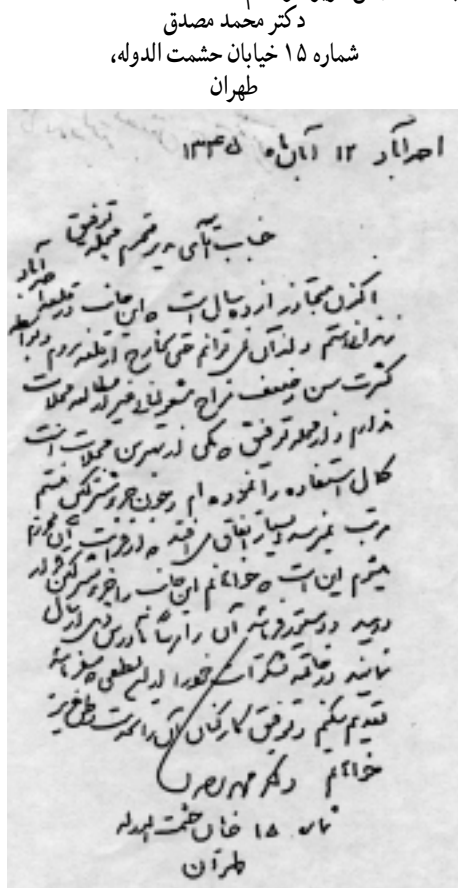 دکتر محمد مصدق
شماره ۱۵ خیابان حشمت الدوله،
طهران
احمدآباد ۱۲ آبان ماه ۱۳۴۵
جناب آقای مدیر محترم مجله توفیق
اکنون متجاوز از ده سال است که این جانب در قلعه احمدآباد
زندانی هستم و از آن نمی توانم حتی خارج از قلعه بروم و بواسطه
کثرت سن و ضعف مزاج مشغولیاتی غیر از مطالعه مجلات
ندارم و از مجله توفیق که یکی از بهترین مجلات است
کمال استفاده را نموده ام و چون جزو مشترکین نیستم
مرتب نمیرسد و بسیار اتفاق می افتد که از قرائت آن محروم
میشوم این است که خواهانم این جانب را جزو مشترکین قرار
دهید و دستور فرمائید آن را مرتباً به آدرس ذیل ارسال
نمایند در خاتمه تشکرات خود را از این لطفی که میفرمائید
تقدیم میکنم و توفیق کارکنان آن را در خدمت به وطن عزیز
خواهانم دکتر محمد مصدق
شماره ۱۵ خیابان حشمت الدوله
طهران